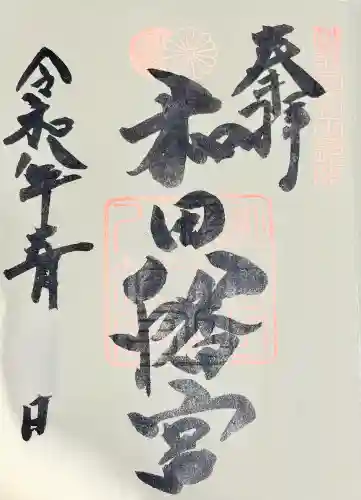 奉拝
和田八幡宮
令和年月
日